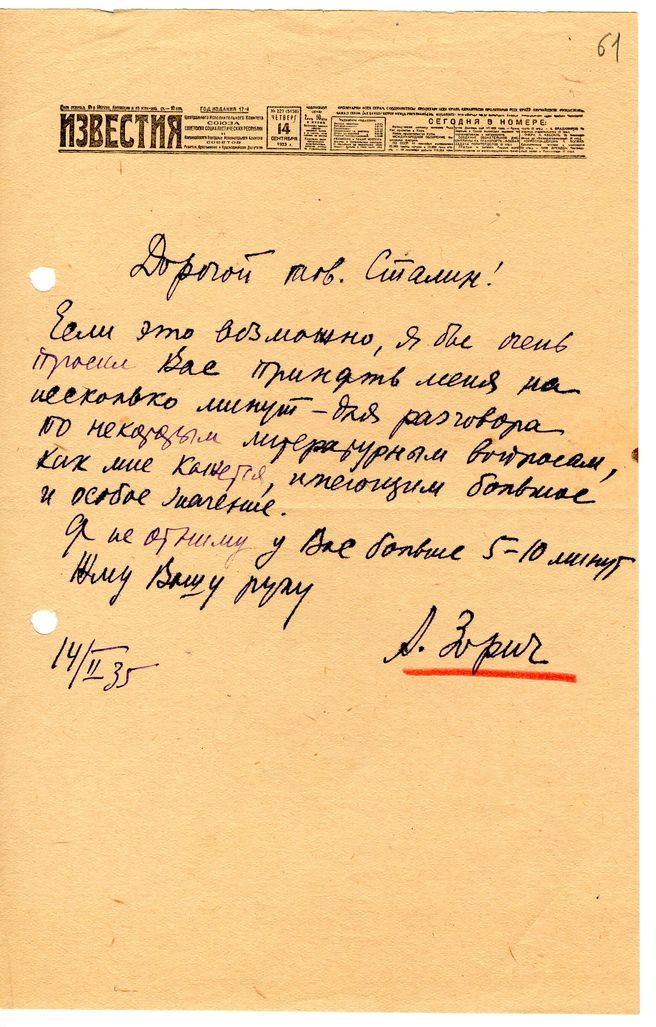 61
ИЗВЕСТИЯ
ГОД ИЗДАНИЯ 17-й
Центрального Исполнительного Комитета
СОЮЗА
СОВЕТСКИХ СОЦИАЛИСТИЧЕСКИХ РЕСПУБЛИК
СОВЕТОВ
ЧЕТВЕРГ
14
СЕНТЯБРЯ
1933 г.
СЕГОДНЯ В НОМЕРЕ:
Дорогой тов. Сталин!
Если это возможно, я бы очень
просил Вас принять меня на
несколько минут – для разговора
по некоторым литературным вопросам,
как мне кажется, имеющим большое
и особое значение.
Я не отниму у Вас больше 5–10 минут
Жму Вашу руку
А. Зорич
14/II 35